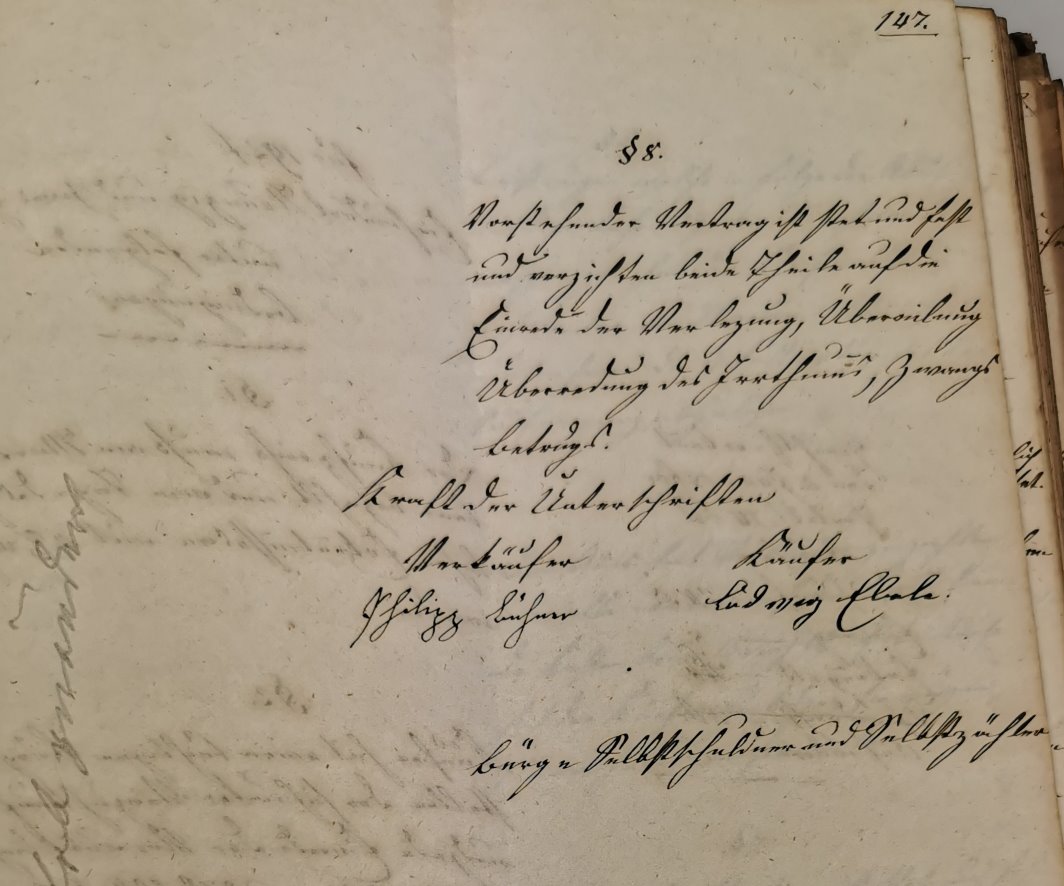 147.
§ 8.
Vorstehender Vertrag ist stet und fest
und verzichten beide Theile auf die
Einrede der Verlezung, Übereilung
Überredung des Irrthums, Zwangs
Betrugs.
Kraft der Unterschriften
Verkäufer Käufer
Philipp Bühner Ludwig Ebele.
Bürge Selbstschuldner und Selbstzahler